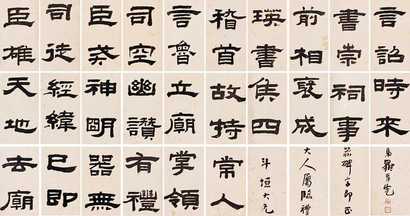 司徒
臣雄
司空
臣戒
稽首
言魯
前相
瑛書
言詔
書崇
經緯
天地
幽讚
神明
故特
立廟
褒成
侯四
時來
祠事
已即
去廟
有禮
器無
常人
掌領
斗垣大兄
大人屬臨禮